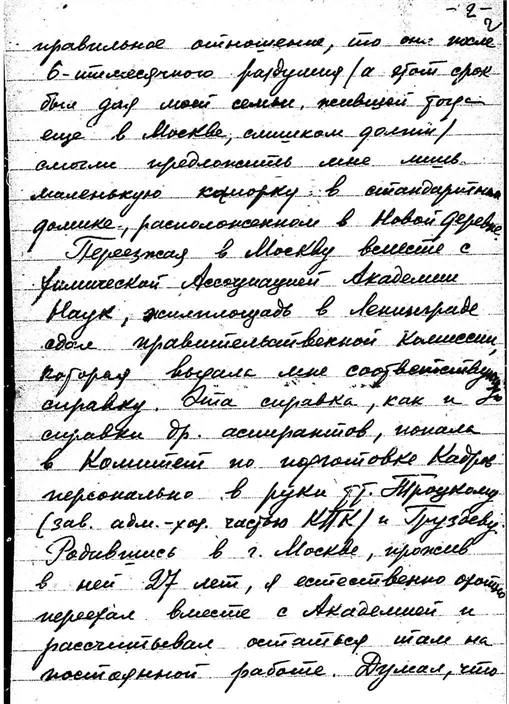 - 2 -
2
правильное отношение, то они после
6-тимесячного раздумия /а этот срок
был для моей семьи, жившей тогда
еще в Москве, слишком долгий/
смогли предложить мне лишь
маленькую каморку в стандартном
домике, расположенном в Новой Деревне.
Переезжая в Москву вместе с
Химической Ассоциацией Академии
Наук, жилплощадь в Ленинграде
сдал правительственной комиссии,
которая выдала мне соответствующую
справку. Эта справка, как и
справки др. аспирантов, попала
в Комитет по подготовке Кадров
персонально в руки тт. Троцкому
(зав. адм.-хоз. частью КПК) и Грузоеву.
Родившись в г. Москве, прожив
в ней 27 лет, я естественно охотно
переехал вместе с Академией и
рассчитывал остаться там на
постоянной работе. Думал, что